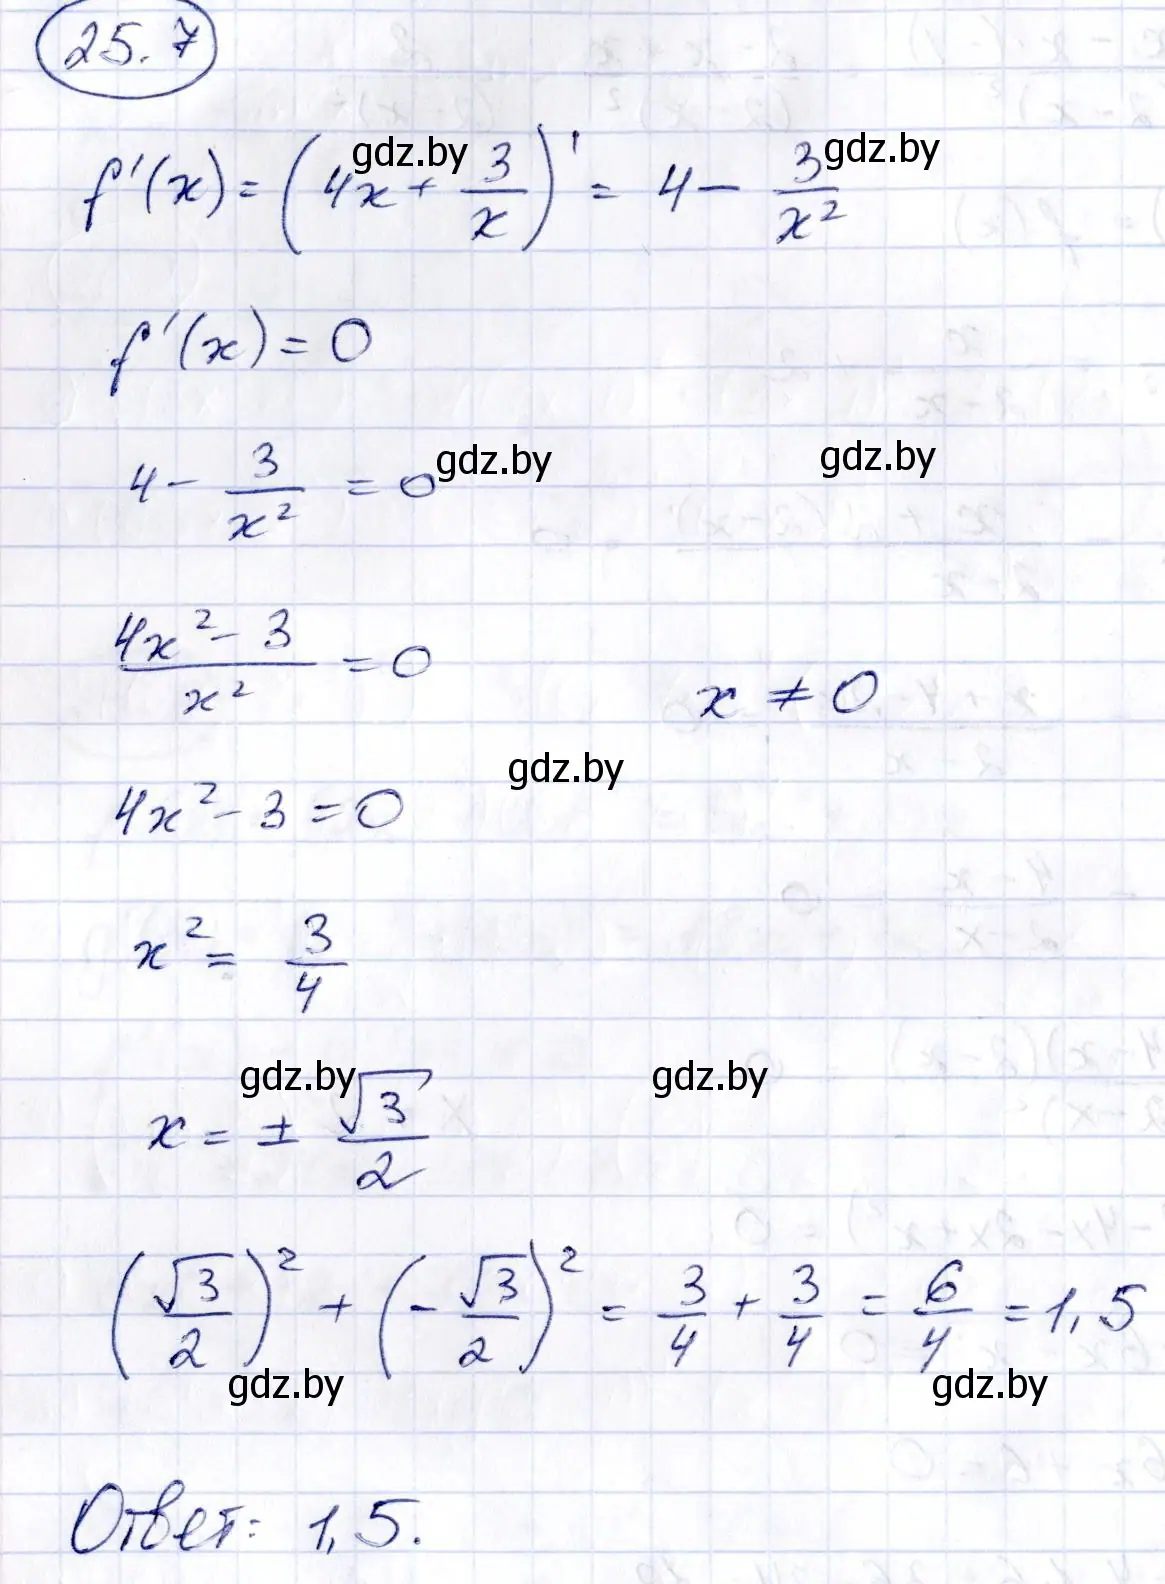 25.7
f'(x) = (4x + 3/x)' = 4 - 3/x²
gdz.by gdz.by
f'(x) = 0
4 - 3/x² = 0
gdz.by gdz.by
(4x² - 3)/x² = 0 x ≠ 0
gdz.by
4x² - 3 = 0
x² = 3/4
gdz.by gdz.by
x = ± √3/2
(√3/2)² + (-√3/2)² = 3/4 + 3/4 = 6/4 = 1,5
gdz.by gdz.by
Ответ: 1,5.